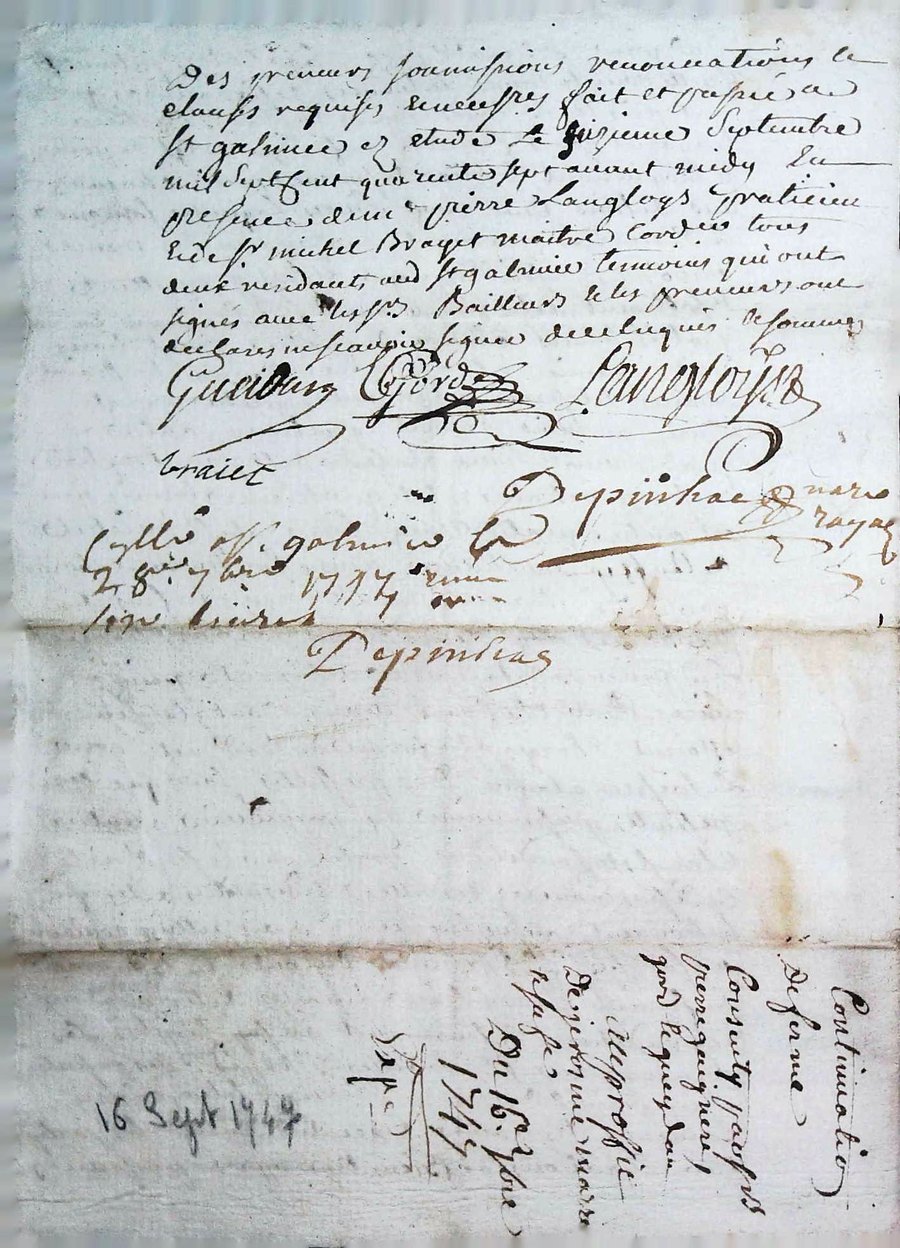 Des preneurs soumissions renonciations et
clauses requises & necess.res fait et passé a
st galmier ez etude Le seizieme Septembre
mil Sept Cent quarente sept avant midy En
presence de m.e pierre Langloys praticien
Et de Sr michel Brayet maitre Cord.er tous
deux residants aud st galmier temoins qui ont
signés avec les srs Bailleurs & les preneurs ont
declarés ne scavoir signer de ce enquis & sommes
Langloys
braiet
Depinhac no.re royal
Scellé a st galmier le
28.me 7bre 1747
Depinhac
Continuation
De ferme
Consenty par srs
pierre
au proffit
De jerosme
sa femme
Du 16.e 7bre
1747
16 Sept 1747